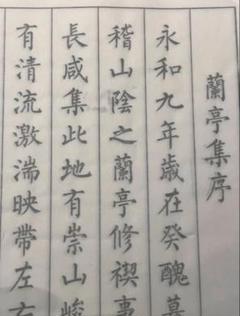 蘭亭集序
永和九年歲在癸醜暮
稽山陰之蘭亭修禊事
長咸集此地有崇山峻
有清流激湍映帶左右